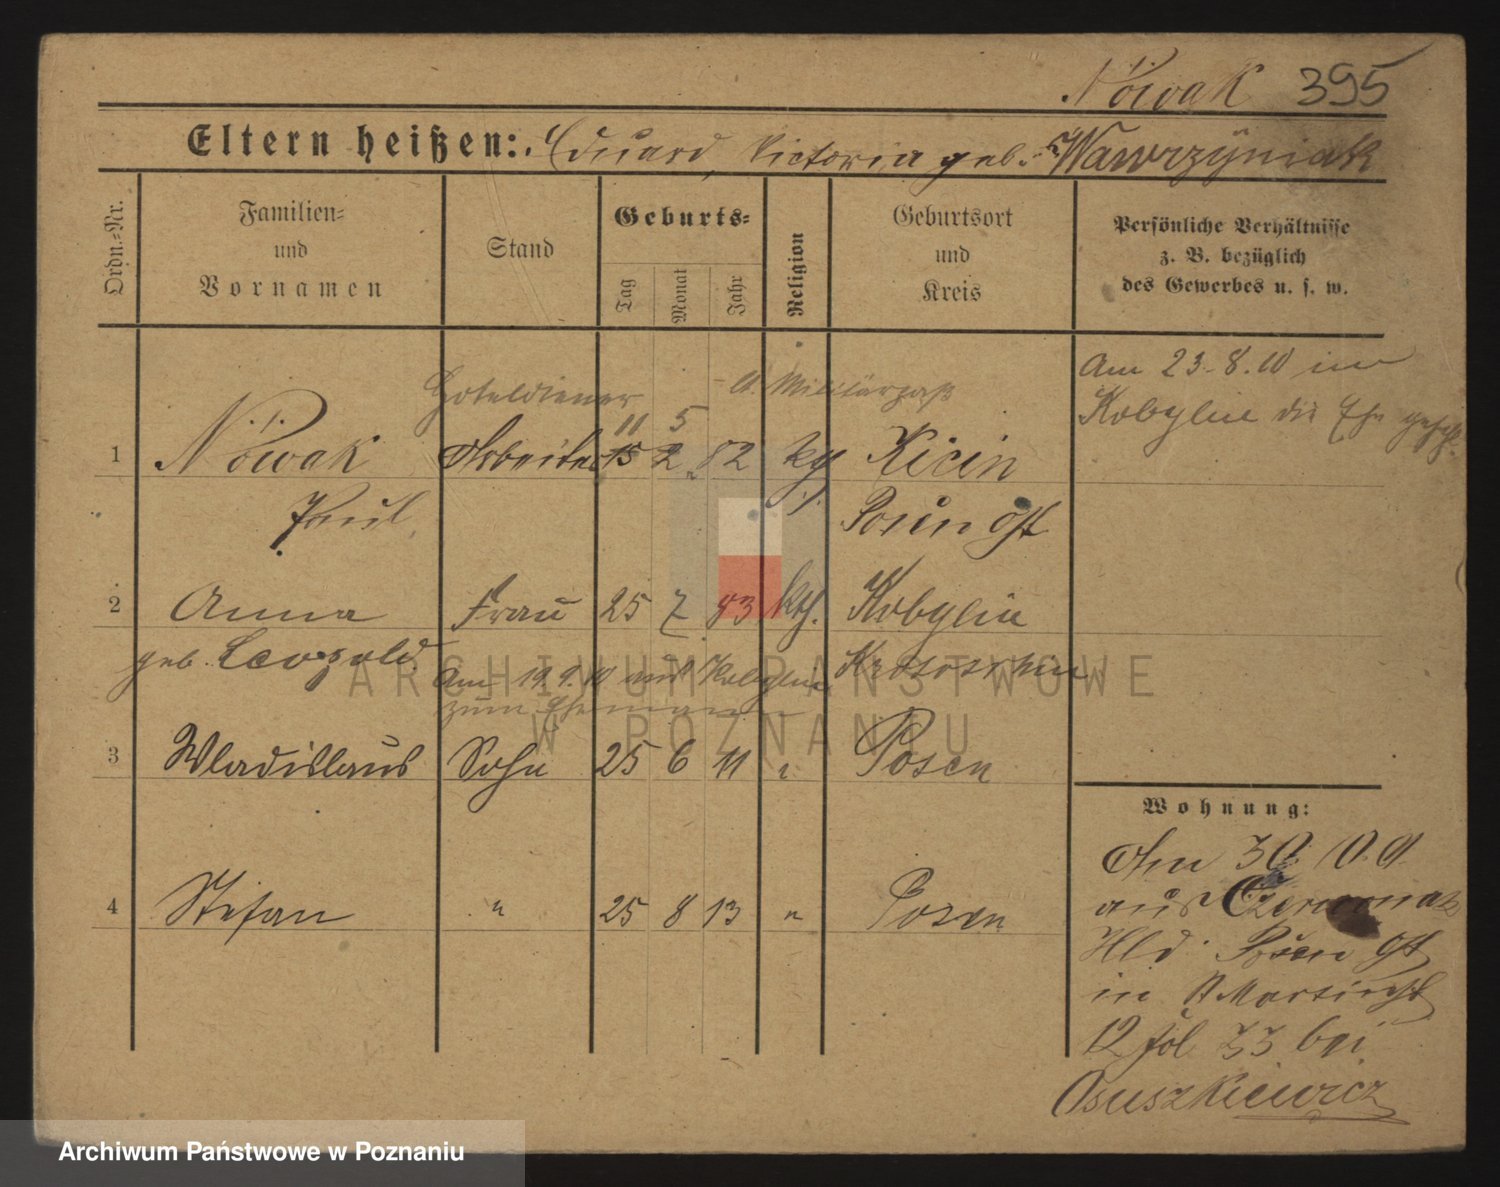 Nowak 395
Eltern heißen: Eduard, Victoria geb. Wawrzyniak
Ordn.-Nr.
Familien-
und
Vornamen
Stand
Geburts-
Tag
Monat
Jahr
Religion
Geburtsort
und
Kreis
Persönliche Verhältnisse
z. B. bezüglich
des Gewerbes u. s. w.
Hoteldiener lt. Militärpaß
11 5
1 Nowak Arbeiter 15 2 82 kgl. Kicin
Am 23.8.10 in
Kobylin die Ehe
Paul Posen Ost
2 Anna Frau 25 7 83 kth. Kobylin
geb. Leopold Krotoschin
Am 19.9.10 aus Kobylin
zum Ehemann
3 Wladislaus Sohn 25 6 11 " Posen
4 Stefan " 25 8 13 " Posen
Wohnung:
Am 30.10.9.
aus Czerwonak
Hld. Posen Ost
in St Martinst
12 Jol 33 bei
Osuszkiewicz
ARCHIWUM PAŃSTWOWE
W POZNANIU
Archiwum Państwowe w Poznaniu